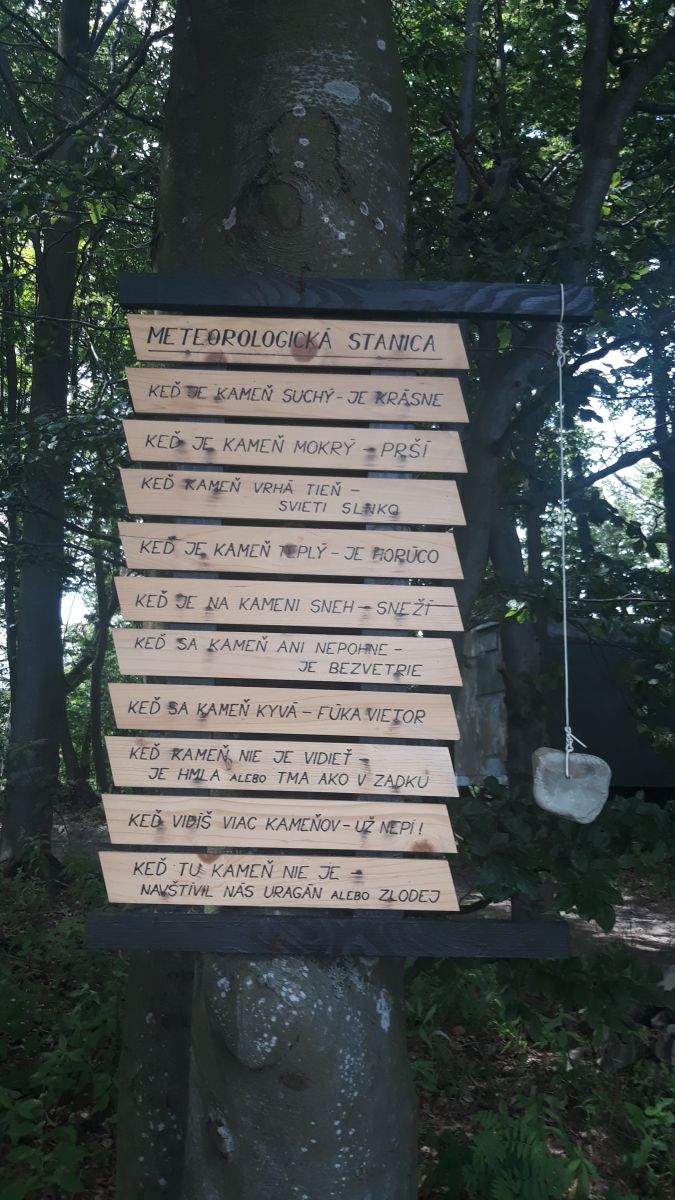 METEOROLOGICKÁ STANICA
KEĎ JE KAMEŇ SUCHÝ - JE KRÁSNE
KEĎ JE KAMEŇ MOKRÝ - PRŠÍ
KEĎ KAMEŇ VRHÁ TIEŇ -
SVIETI SLNKO
KEĎ JE KAMEŇ TEPLÝ - JE HORÚCO
KEĎ JE NA KAMENI SNEH - SNEŽÍ
KEĎ SA KAMEŇ ANI NEPOHNE -
JE BEZVETRIE
KEĎ SA KAMEŇ KÝVA - FÚKA VIETOR
KEĎ KAMEŇ NIE JE VIDIEŤ -
JE HMLA ALEBO TMA AKO V ZADKU
KEĎ VIDÍŠ VIAC KAMEŇOV - UŽ NEPI!
KEĎ TU KAMEŇ NIE JE -
NAVŠTÍVIL NÁS URAGÁN ALEBO ZLODEJ